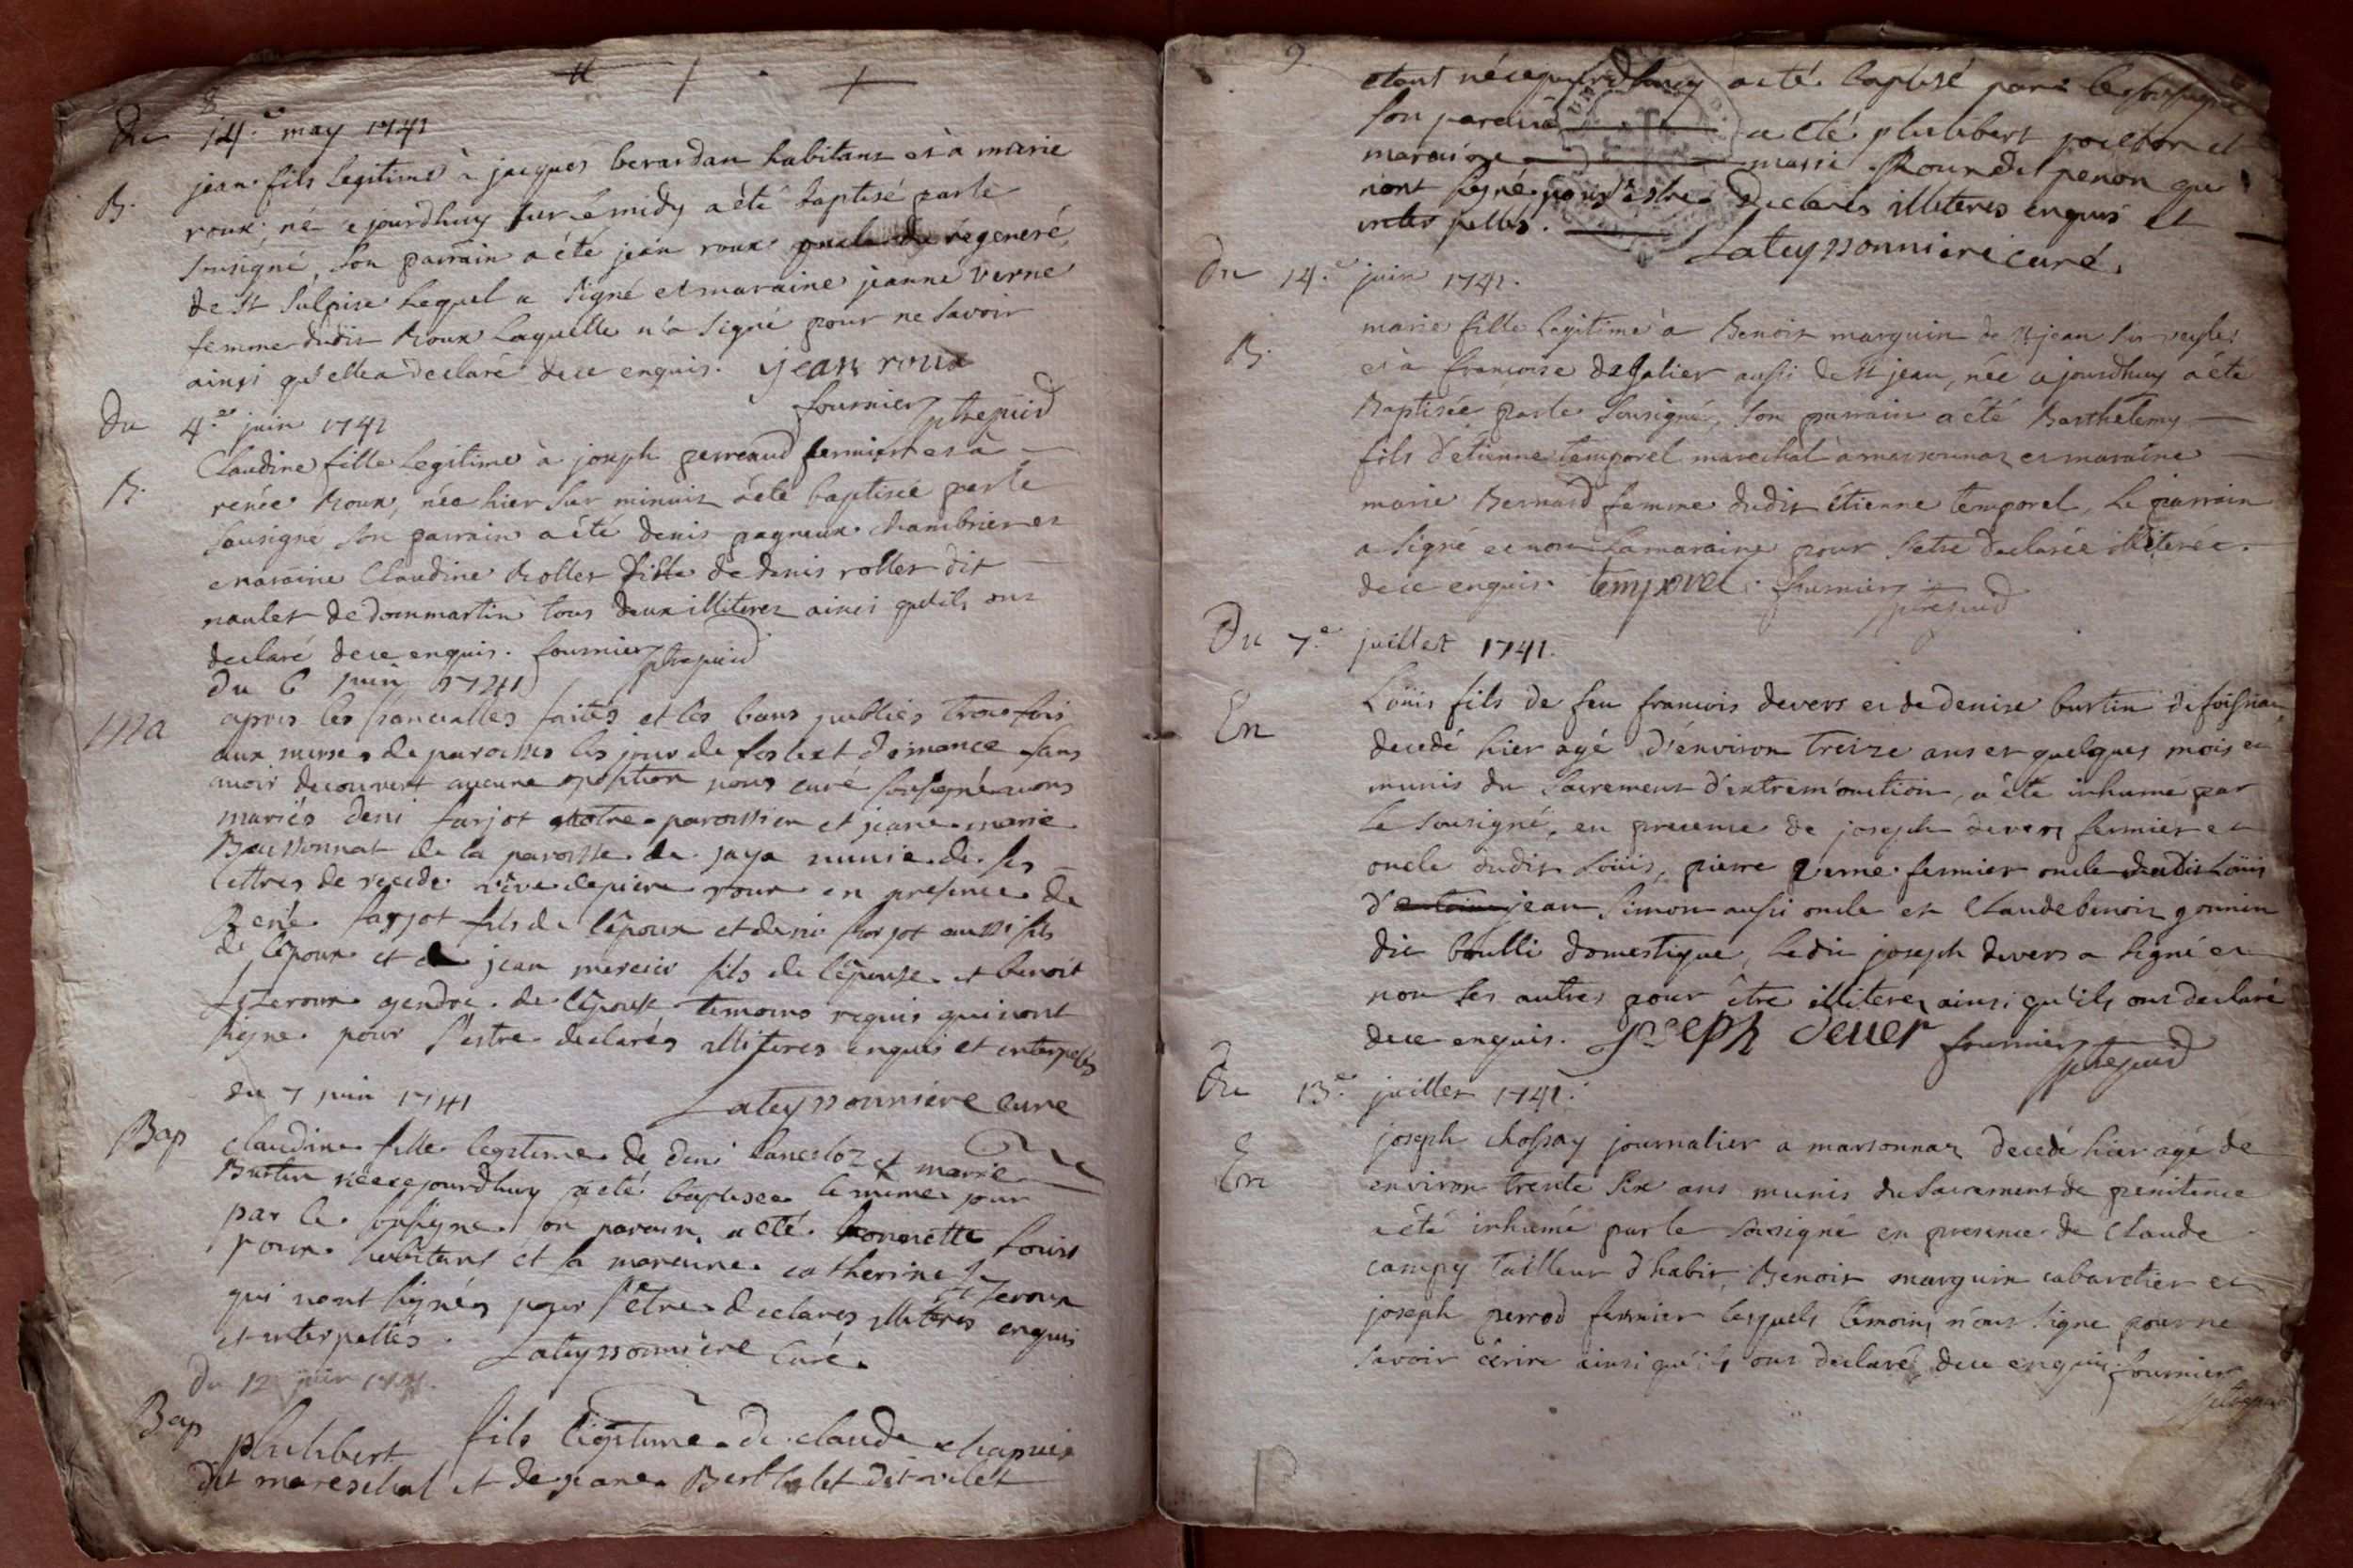 8
Du 14.e may 1741
B. jean fils legitime à jacques berardan habitant et à marie
roux, né cejourdhuy sur le midy a été baptisé par le
sousigné, son parrain a été jean roux régeneré
de st Sulpise lequel a signé et maraine jeanne verne
femme dudit Roux laquelle n'a signé pour ne savoir
ainsi qu'elle a declaré de ce enquis. jean roux
fournier
Du 4.e juin 1741
B. Claudine fille legitime à joseph perreaud fermier et à
renée Roux, née hier sur minuit a été baptisée par le
sousigné son parrain a été denis pagneux chambrier et
maraine Claudine Rollet fille de denis rollet dit
naulet de dommartin tous deux illiterez ainsi qu'ils ont
declaré de ce enquis. fournier
du 6 juin 1741
Ma apres les fiancialles faites et les bans publiés trois fois
aux messes de paroisses les jour de feste et dimance sans
avoir decouvert aucune oposition nous curé sousigné avons
mariés deni farjot notre paroissien et jeane marie
Boissonnat de la paroisse de jaya munie de ses
lettres de recede roux en presence de
René farjot fils de l'époux et deni farjot aussi fils
de l'époux et de jean mercier fils de l'épouse et benoit
gendre de l'épouse temoins requis qui n'ont
signe pour s'estre declarés illiteres enquis et interpellés
du 7 juin 1741 Lateyssonniere curé
Bap Claudine fille legitime de deni et marie
Burtin née cejourdhuy a été baptisée le même jour
par le sousigné son parain a été Louis
roux habitant et la maraine catherine
qui nont signés pour s'être declarés illiteres enquis
et interpellés. Lateyssonniere Curé.
Du 12 juin 1741.
Bap philibert fils legitime de claude chapuis
dit mareschal et de jeane Berthelet dit velet
9
etant né cejourdhuy a été baptisé par le sousigné
son parain a été philibert et
maraine Roux de penon qui
nont signé pour s'estre declarés illiteres enquis et
interpellés.
Lateyssonniere curé.
Du 14.e juin 1741.
B. marie fille legitime à Benoit marguin de st jean sur
et à francoise degalier aussi de st jean, née cejourdhuy a été
Baptisée par le sousigné, son parrain a été Barthelemy
fils d'etienne temporel marechal à marsonnaz et maraine
marie Bernard femme dudit étienne temporel, le parrain
a signé et non la maraine pour s'etre declarée illiterée.
de ce enquis. temporel. fournier
Du 7.e juillet 1741.
En Loüis fils de feu francois devers et de denise burtin de foissiat,
decedé hier agé d'environ treize ans et quelques mois et
munis du sacrement d'extrem'onction, a été inhumé par
le sousigné, en presence de joseph devers fermier et
oncle dudit Loüis, pierre verne fermier oncle dudit Loüis
d' jean simon aussi oncle et Claude benoit gonnin
dit boulli domestique, ledit joseph devers a signé et
non les autres pour être illiterez ainsi qu'ils ont declaré
de ce enquis. joseph dever fournier
Du 13.e juillet 1741.
En joseph chossay journalier a marsonnaz decedé hier agé de
environ trente six ans munis du sacrement de penitence
a été inhumé par le sousigné en presence de Claude
campy tailleur d'habit, Benoit marguin cabaretier et
joseph perrod fermier lesquels témoins n'ont signé pour ne
savoir écrire ainsi qu'ils ont declaré de ce enquis. fournier